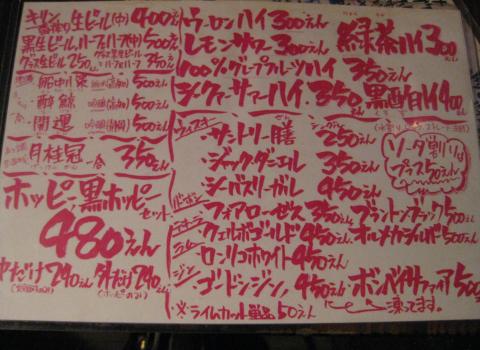 キリン 一番搾り 生ビール(中) 400えん
黒生ビール、ハーフ&ハーフ(中) 500えん
グラス生ビール 250えん グラス黒生ビール・ハーフ&ハーフ 350えん
船中八策 (高知) 500えん
酔鯨 吟醸(高知) 500えん
開運 500えん
月桂冠 一合 350えん
ホッピー、黒ホッピー
セット
480えん
中だけ 240えん 外だけ 240えん
(ホッピーのみ)
ウーロンハイ 300えん
レモンサワー 300えん
100%グレープフルーツハイ 350えん
シークァーサーハイ・350えん
緑茶ハイ 300えん
黒酢ハイ 400えん
ウィスキー シングル
・サントリー膳 250えん
・ジャックダニエル 350えん
・シーバスリーガル 450えん
ソーダ割りは
プラス50えん
バーボン ・フォアローゼス 350えん ・ブラントンブラック 500えん
テキーラ ・クエルボゴールド 450えん ・オルメカシルバー 500えん
ラム ・ロンリコホワイト 450えん
ジン ・ゴードンジン 450えん ・ボンベイサファイア 500えん
※ライムカット 50えん 凍ってます。